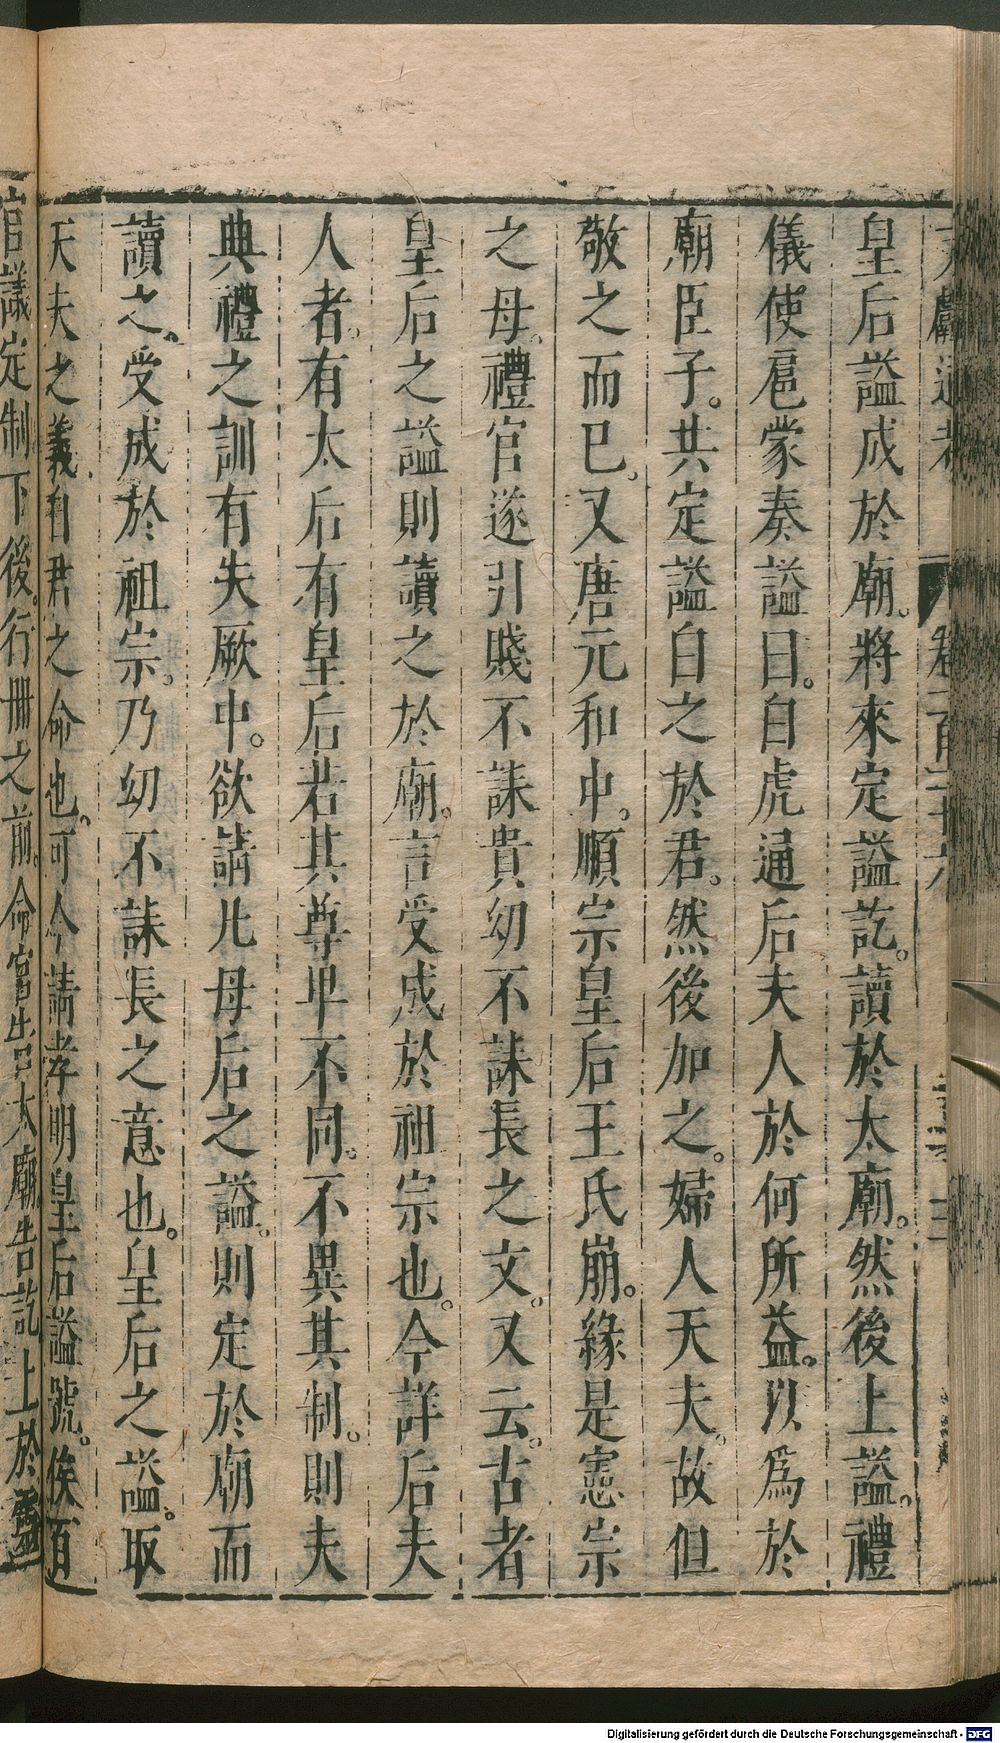 文獻通考 卷一百二十六
皇后謚成於廟。將來定謚訖。讀於太廟。然後上謚。禮
儀使扈蒙奏謚曰。白虎通后夫人於何所益。以爲於
廟臣子。共定謚白之於君。然後加之。婦人天夫。故但
敬之而已。又唐元和中。順宗皇后王氏崩。緣是憲宗
之母。禮官遂引賤不誄貴幼不誄長之文。又云。古者
皇后之謚則讀之於廟。言受成於祖宗也。今詳后夫
人者。有太后有皇后若其尊卑不同。不異其制。則夫
典禮之訓有失厥中。欲請凡母后之謚。則定於廟而
讀之。受成於祖宗。乃幼不誄長之意也。皇后之謚。取
天夫之義自君之命也。可今請孝明皇后謚號。俟百
官議定制下後。行冊之前。命官告太廟告訖上於靈
Digitalisierung gefördert durch die Deutsche Forschungsgemeinschaft - DFG